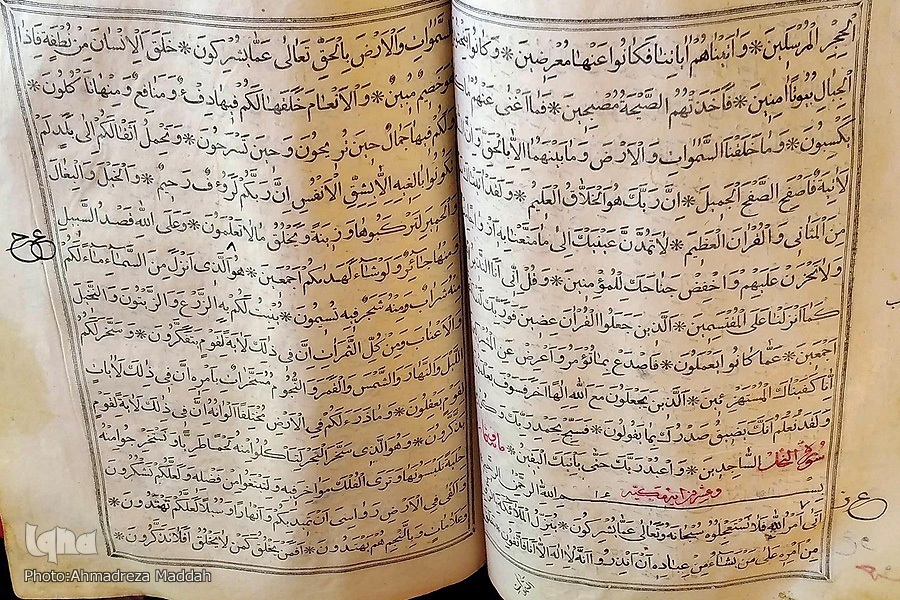 الْحِجْرِ الْمُرْسَلِينَ * وَاٰتَيْنَاهُمْ اٰيَاتِنَا فَكَانُوا عَنْهَا مُعْرِضِينَ * وَكَانُوا
الْجِبَالِ بُيُوتًا اٰمِنِينَ * فَاَخَذَتْهُمُ الصَّيْحَةُ مُصْبِحِينَ * فَمَا اَغْنٰى عَنْهُمْ
يَكْسِبُونَ * وَمَا خَلَقْنَا السَّمٰوَاتِ وَالْاَرْضَ وَمَا بَيْنَهُمَا اِلَّا بِالْحَقِّ وَاِنَّ
لَاٰتِيَةٌ فَاصْفَحِ الصَّفْحَ الْجَمِيلَ * اِنَّ رَبَّكَ هُوَ الْخَلَّاقُ الْعَلِيمُ * وَلَقَدْ
مِنَ الْمَثَانِي وَالْقُرْاٰنَ الْعَظِيمَ * لَا تَمُدَّنَّ عَيْنَيْكَ اِلٰى مَا مَتَّعْنَا بِهِ
وَلَا تَحْزَنْ عَلَيْهِمْ وَاخْفِضْ جَنَاحَكَ لِلْمُؤْمِنِينَ * وَقُلْ اِنِّي اَنَا
كَمَا اَنْزَلْنَا عَلَى الْمُقْتَسِمِينَ * الَّذِينَ جَعَلُوا الْقُرْاٰنَ عِضِينَ * فَوَرَبِّكَ
اَجْمَعِينَ * عَمَّا كَانُوا يَعْمَلُونَ * فَاصْدَعْ بِمَا تُؤْمَرُ وَاَعْرِضْ عَنِ
اِنَّا كَفَيْنَاكَ الْمُسْتَهْزِئِينَ * الَّذِينَ يَجْعَلُونَ مَعَ اللّٰهِ اِلٰهًا اٰخَرَ فَسَوْفَ
وَلَقَدْ نَعْلَمُ اَنَّكَ يَضِيقُ صَدْرُكَ بِمَا يَقُولُونَ * فَسَبِّحْ بِحَمْدِ رَبِّكَ وَكُنْ
السَّاجِدِينَ * وَاعْبُدْ رَبَّكَ حَتّٰى يَأْتِيَكَ الْيَقِينُ *
سورة النحل
بسم اللّٰه الرحمن الرحيم
اَتٰى اَمْرُ اللّٰهِ فَلَا تَسْتَعْجِلُوهُ سُبْحَانَهُ وَتَعَالٰى عَمَّا يُشْرِكُونَ * يُنَزِّلُ الْمَلٰٓئِكَةَ
مِنْ اَمْرِهِ عَلٰى مَنْ يَشَاءُ مِنْ عِبَادِهِ اَنْ اَنْذِرُوا اَنَّهُ لَا اِلٰهَ اِلَّا اَنَا فَاتَّقُونِ
السَّمٰوَاتِ وَالْاَرْضَ بِالْحَقِّ تَعَالٰى عَمَّا يُشْرِكُونَ * خَلَقَ الْاِنْسَانَ مِنْ نُطْفَةٍ فَاِذَا
هُوَ خَصِيمٌ مُبِينٌ * وَالْاَنْعَامَ خَلَقَهَا لَكُمْ فِيهَا دِفْءٌ وَمَنَافِعُ وَمِنْهَا تَأْكُلُونَ *
وَلَكُمْ فِيهَا جَمَالٌ حِينَ تُرِيحُونَ وَحِينَ تَسْرَحُونَ * وَتَحْمِلُ اَثْقَالَكُمْ اِلٰى بَلَدٍ لَمْ
تَكُونُوا بَالِغِيهِ اِلَّا بِشِقِّ الْاَنْفُسِ اِنَّ رَبَّكُمْ لَرَؤُفٌ رَحِيمٌ * وَالْخَيْلَ وَالْبِغَالَ
وَالْحَمِيرَ لِتَرْكَبُوهَا وَزِينَةً وَيَخْلُقُ مَا لَا تَعْلَمُونَ * وَعَلَى اللّٰهِ قَصْدُ السَّبِيلِ
وَمِنْهَا جَائِرٌ وَلَوْ شَاءَ لَهَدٰيكُمْ اَجْمَعِينَ * هُوَ الَّذِي اَنْزَلَ مِنَ السَّمَاءِ مَاءً لَكُمْ
مِنْهُ شَرَابٌ وَمِنْهُ شَجَرٌ فِيهِ تُسِيمُونَ * يُنْبِتُ لَكُمْ بِهِ الزَّرْعَ وَالزَّيْتُونَ وَالنَّخِيلَ
وَالْاَعْنَابَ وَمِنْ كُلِّ الثَّمَرَاتِ اِنَّ فِي ذٰلِكَ لَاٰيَةً لِقَوْمٍ يَتَفَكَّرُونَ * وَسَخَّرَ لَكُمُ
اللَّيْلَ وَالنَّهَارَ وَالشَّمْسَ وَالْقَمَرَ وَالنُّجُومُ مُسَخَّرَاتٌ بِاَمْرِهِ اِنَّ فِي ذٰلِكَ لَاٰيَاتٍ
لِقَوْمٍ يَعْقِلُونَ * وَمَا ذَرَاَ لَكُمْ فِي الْاَرْضِ مُخْتَلِفًا اَلْوَانُهُ اِنَّ فِي ذٰلِكَ لَاٰيَةً لِقَوْمٍ
يَذَّكَّرُونَ * وَهُوَ الَّذِي سَخَّرَ الْبَحْرَ لِتَأْكُلُوا مِنْهُ لَحْمًا طَرِيًّا وَتَسْتَخْرِجُوا مِنْهُ
حِلْيَةً تَلْبَسُونَهَا وَتَرَى الْفُلْكَ مَوَاخِرَ فِيهِ وَلِتَبْتَغُوا مِنْ فَضْلِهِ وَلَعَلَّكُمْ تَشْكُرُونَ
وَاَلْقٰى فِي الْاَرْضِ رَوَاسِيَ اَنْ تَمِيدَ بِكُمْ وَاَنْهَارًا وَسُبُلًا لَعَلَّكُمْ تَهْتَدُونَ *
وَعَلَامَاتٍ وَبِالنَّجْمِ هُمْ يَهْتَدُونَ * اَفَمَنْ يَخْلُقُ كَمَنْ لَا يَخْلُقُ اَفَلَا تَذَكَّرُونَ *
Iqna
Photo:Ahmadreza Maddah